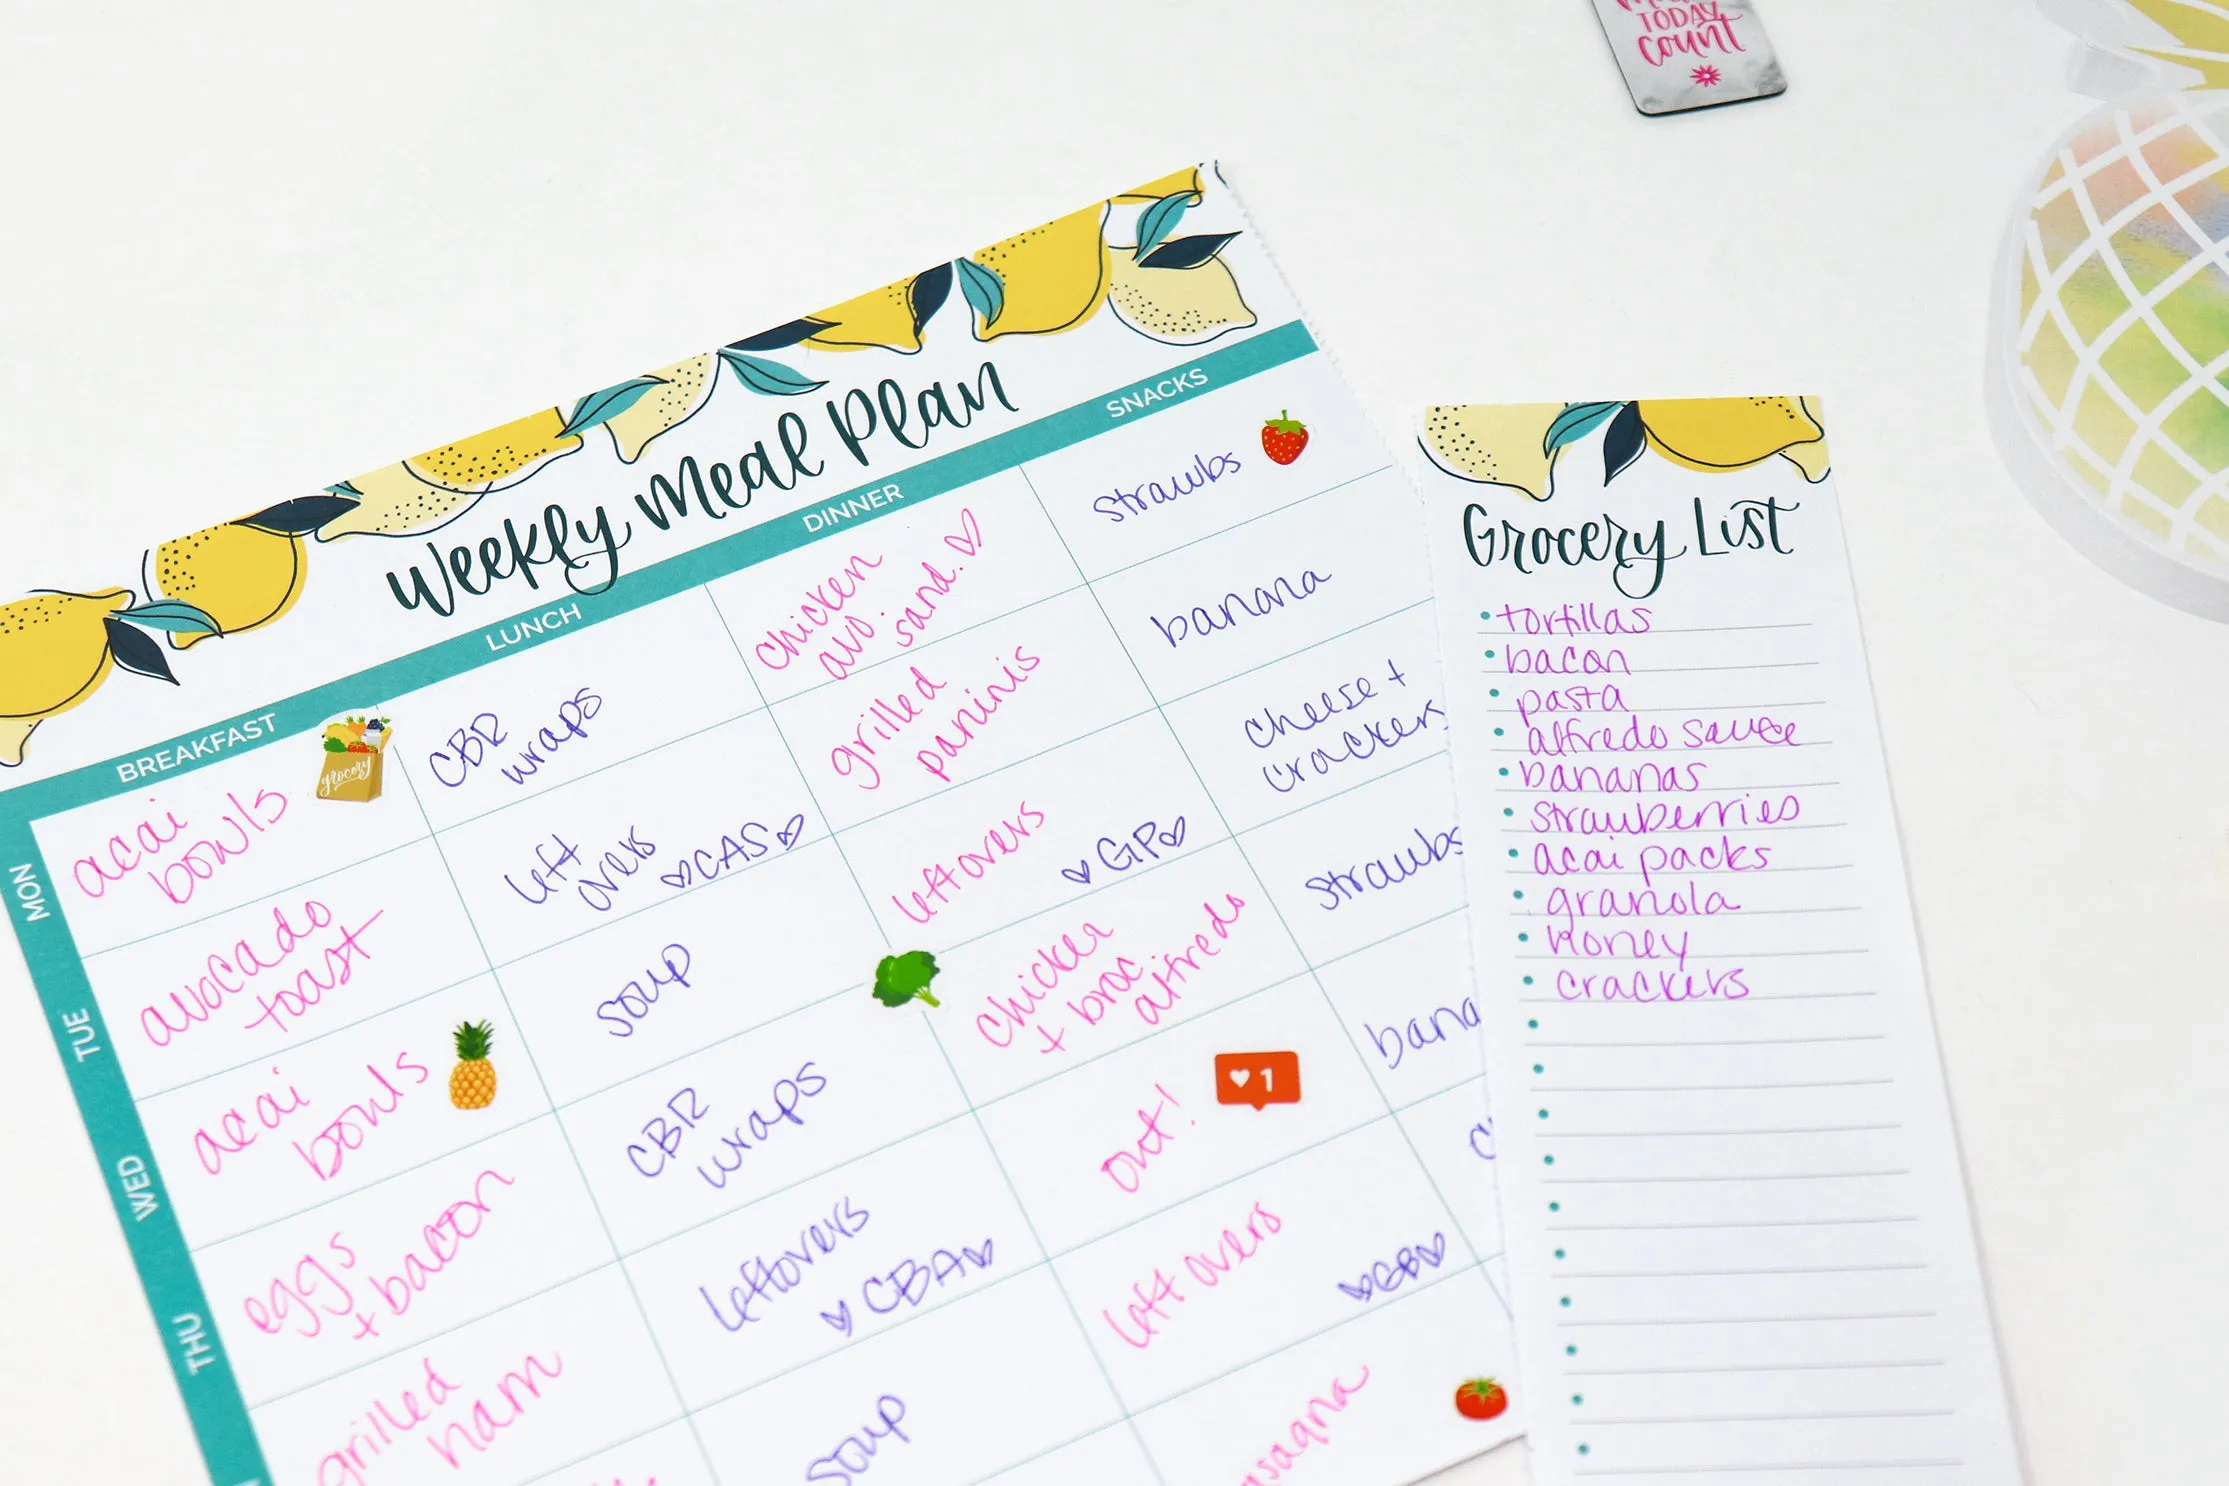 TODAY
count
Weekly Meal Plan
BREAKFAST
LUNCH
DINNER
SNACKS
grocery
MON
acai
bowls
CBR
wraps
chicken
avo
sand.
strawbs
TUE
avocado
toast
left
overs
CAS
grilled
paninis
banana
WED
acai
bowls
soup
leftovers
GP
cheese +
crackers
THU
eggs
+ bacon
CBR
wraps
chicken
+ broc
alfredo
strawbs
grilled
ham
leftovers
CBA
out!
1
bana
soup
left overs
Grocery List
tortillas
bacon
pasta
alfredo sauce
bananas
strawberries
acai packs
granola
honey
crackers